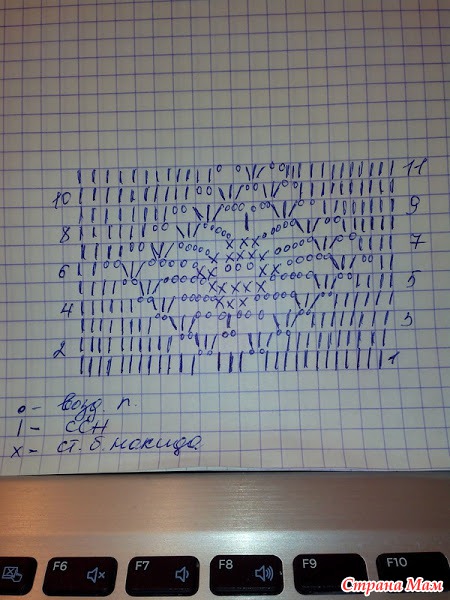 11
10
9
8
7
6
5
4
3
2
1
о - возд. п.
| - ССН
х - ст. б. накида.
F6
F7
F8
F9
F10
Страна Мам